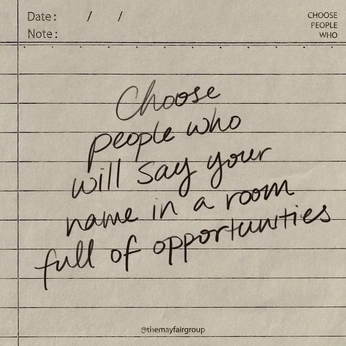 Date: / /
Note:
CHOOSE
PEOPLE
WHO
Choose
people who
will say your
name in a room
full of opportunities
@themayfairgroup